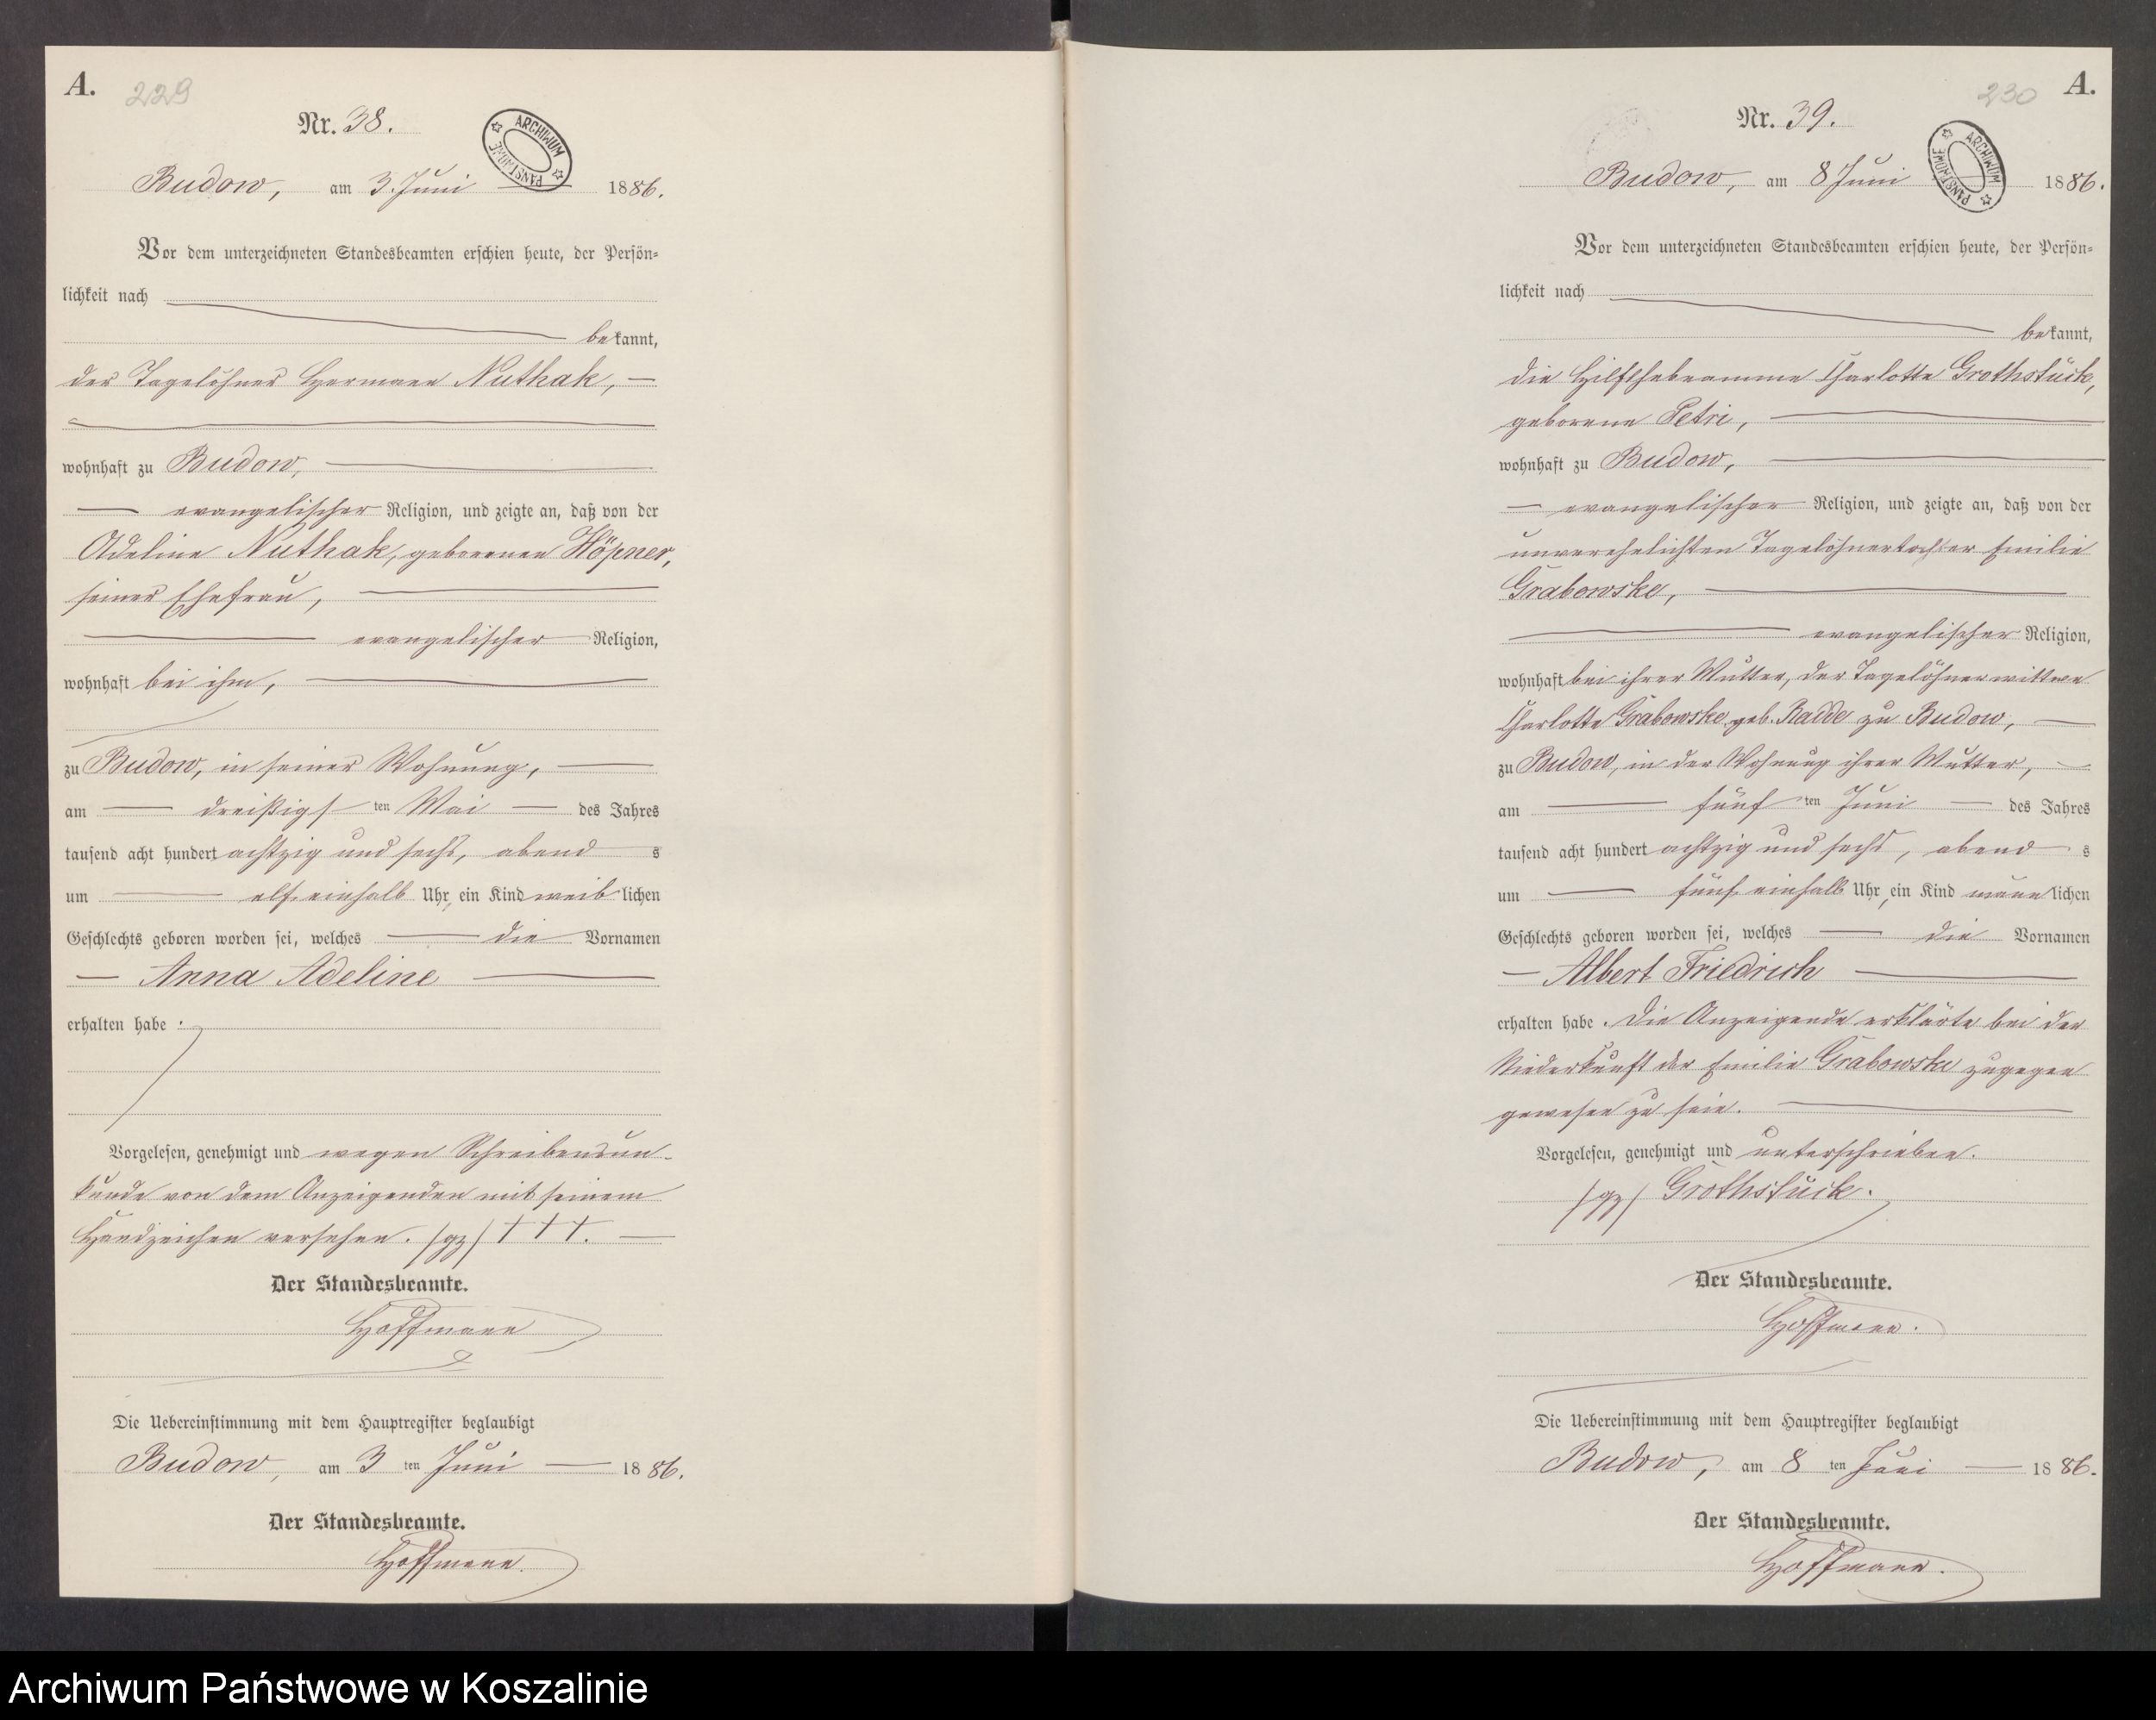 A.
229
Nr. 38.
ARCHIWUM PAŃSTWOWE
Budow, am 3. Juni 1886.
Vor dem unterzeichneten Standesbeamten erschien heute, der Persön-
lichkeit nach
bekannt,
der Tagelöhner Hermann Nuthak,
wohnhaft zu Budow,
evangelischer Religion, und zeigte an, daß von der
Adeline Nuthak, geborenen Höpner,
seiner Ehefrau,
evangelischer Religion,
wohnhaft bei ihm,
zu Budow, in seiner Wohnung,
am dreißigsten Mai des Jahres
tausend acht hundert achtzig und sechs, abends
um elf einhalb Uhr, ein Kind weiblichen
Geschlechts geboren worden sei, welches die Vornamen
Anna Adeline
erhalten habe.
Vorgelesen, genehmigt und wegen Schreibensun-
kunde von dem Anzeigenden mit seinem
Handzeichen versehen. /gz/ † † †.
Der Standesbeamte.
Hoffmann
Die Uebereinstimmung mit dem Hauptregister beglaubigt
Budow, am 3 ten Juni 1886.
Der Standesbeamte.
Hoffmann.
A.
230
Nr. 39.
ARCHIWUM PAŃSTWOWE
Budow, am 8 Juni 1886.
Vor dem unterzeichneten Standesbeamten erschien heute, der Persön-
lichkeit nach
bekannt,
die Hilfshebeamme Charlotte Grothstück,
geborene Petri,
wohnhaft zu Budow,
evangelischer Religion, und zeigte an, daß von der
unverehelichten Tagelöhnertochter Emilie
Grabowske,
evangelischer Religion,
wohnhaft bei ihrer Mutter, der Tagelöhnerwittwe
Charlotte Grabowske geb. Radde zu Budow,
zu Budow, in der Wohnung ihrer Mutter,
am fünf ten Juni des Jahres
tausend acht hundert achtzig und sechs, abends
um fünf einhalb Uhr, ein Kind männlichen
Geschlechts geboren worden sei, welches die Vornamen
Albert Friedrich
erhalten habe. Die Anzeigende erklärte bei der
Niederkunft der Emilie Grabowske zugegen
gewesen zu sein.
Vorgelesen, genehmigt und unterschrieben.
/gz/ Grothstück.
Der Standesbeamte.
Hoffmann.
Die Uebereinstimmung mit dem Hauptregister beglaubigt
Budow, am 8 ten Juni 1886.
Der Standesbeamte.
Hoffmann.
Archiwum Państwowe w Koszalinie